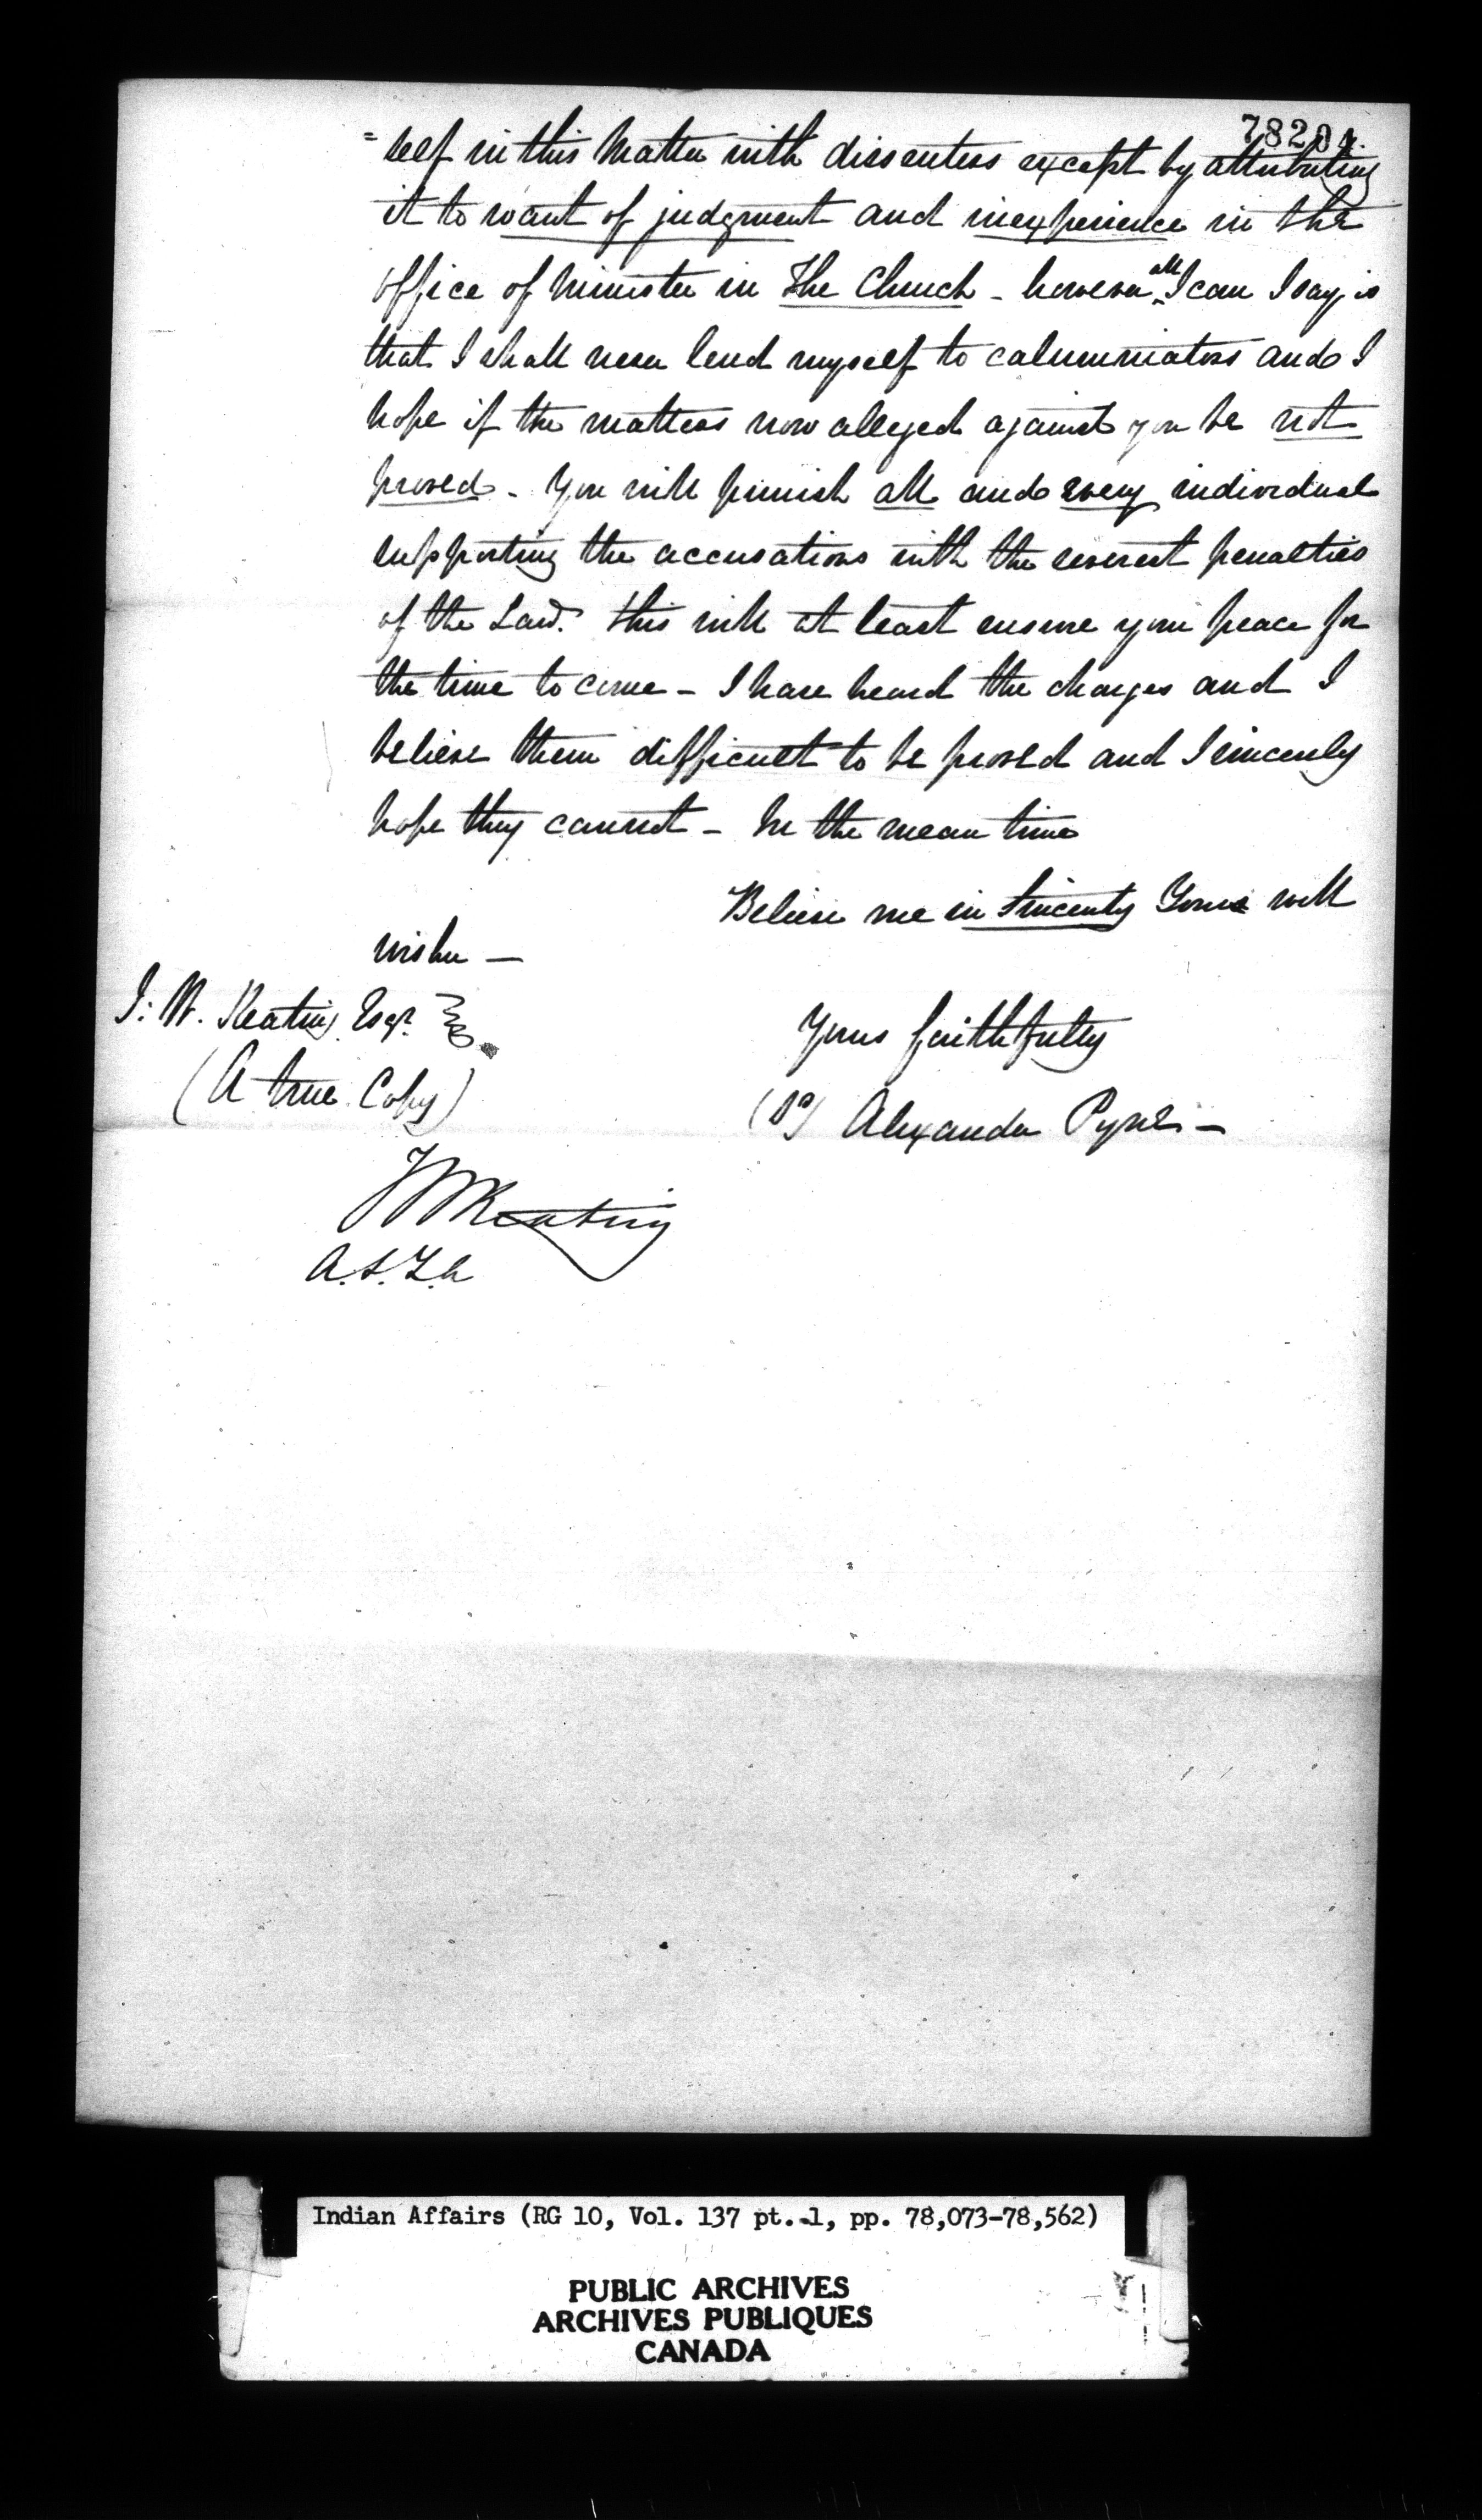 78201.
= self in this Matter with dissenters except by attributing
it to want of judgment and inexperience in the
office of Minister in The Church - however all I can I say is
that I shall never lend myself to calumniators and I
hope if the matters now alleged against you be not
proved - You will punish all and every individual
supporting the accusations with the severest penalties
of the Law. This will at least ensure your peace for
the time to come - I have heard the charges and I
believe them difficult to be proved and I sincerely
hope they cannot - In the mean time
Believe me in Sincerity Yours well
wisher -
J: W. Keating Esqr.
Yours faithfully
(A true Copy)
(Sd) Alexander Pyne -
JWKeating
A.S.I.A
Indian Affairs (RG 10, Vol. 137 pt. 1, pp. 78,073-78,562)
PUBLIC ARCHIVES
ARCHIVES PUBLIQUES
CANADA